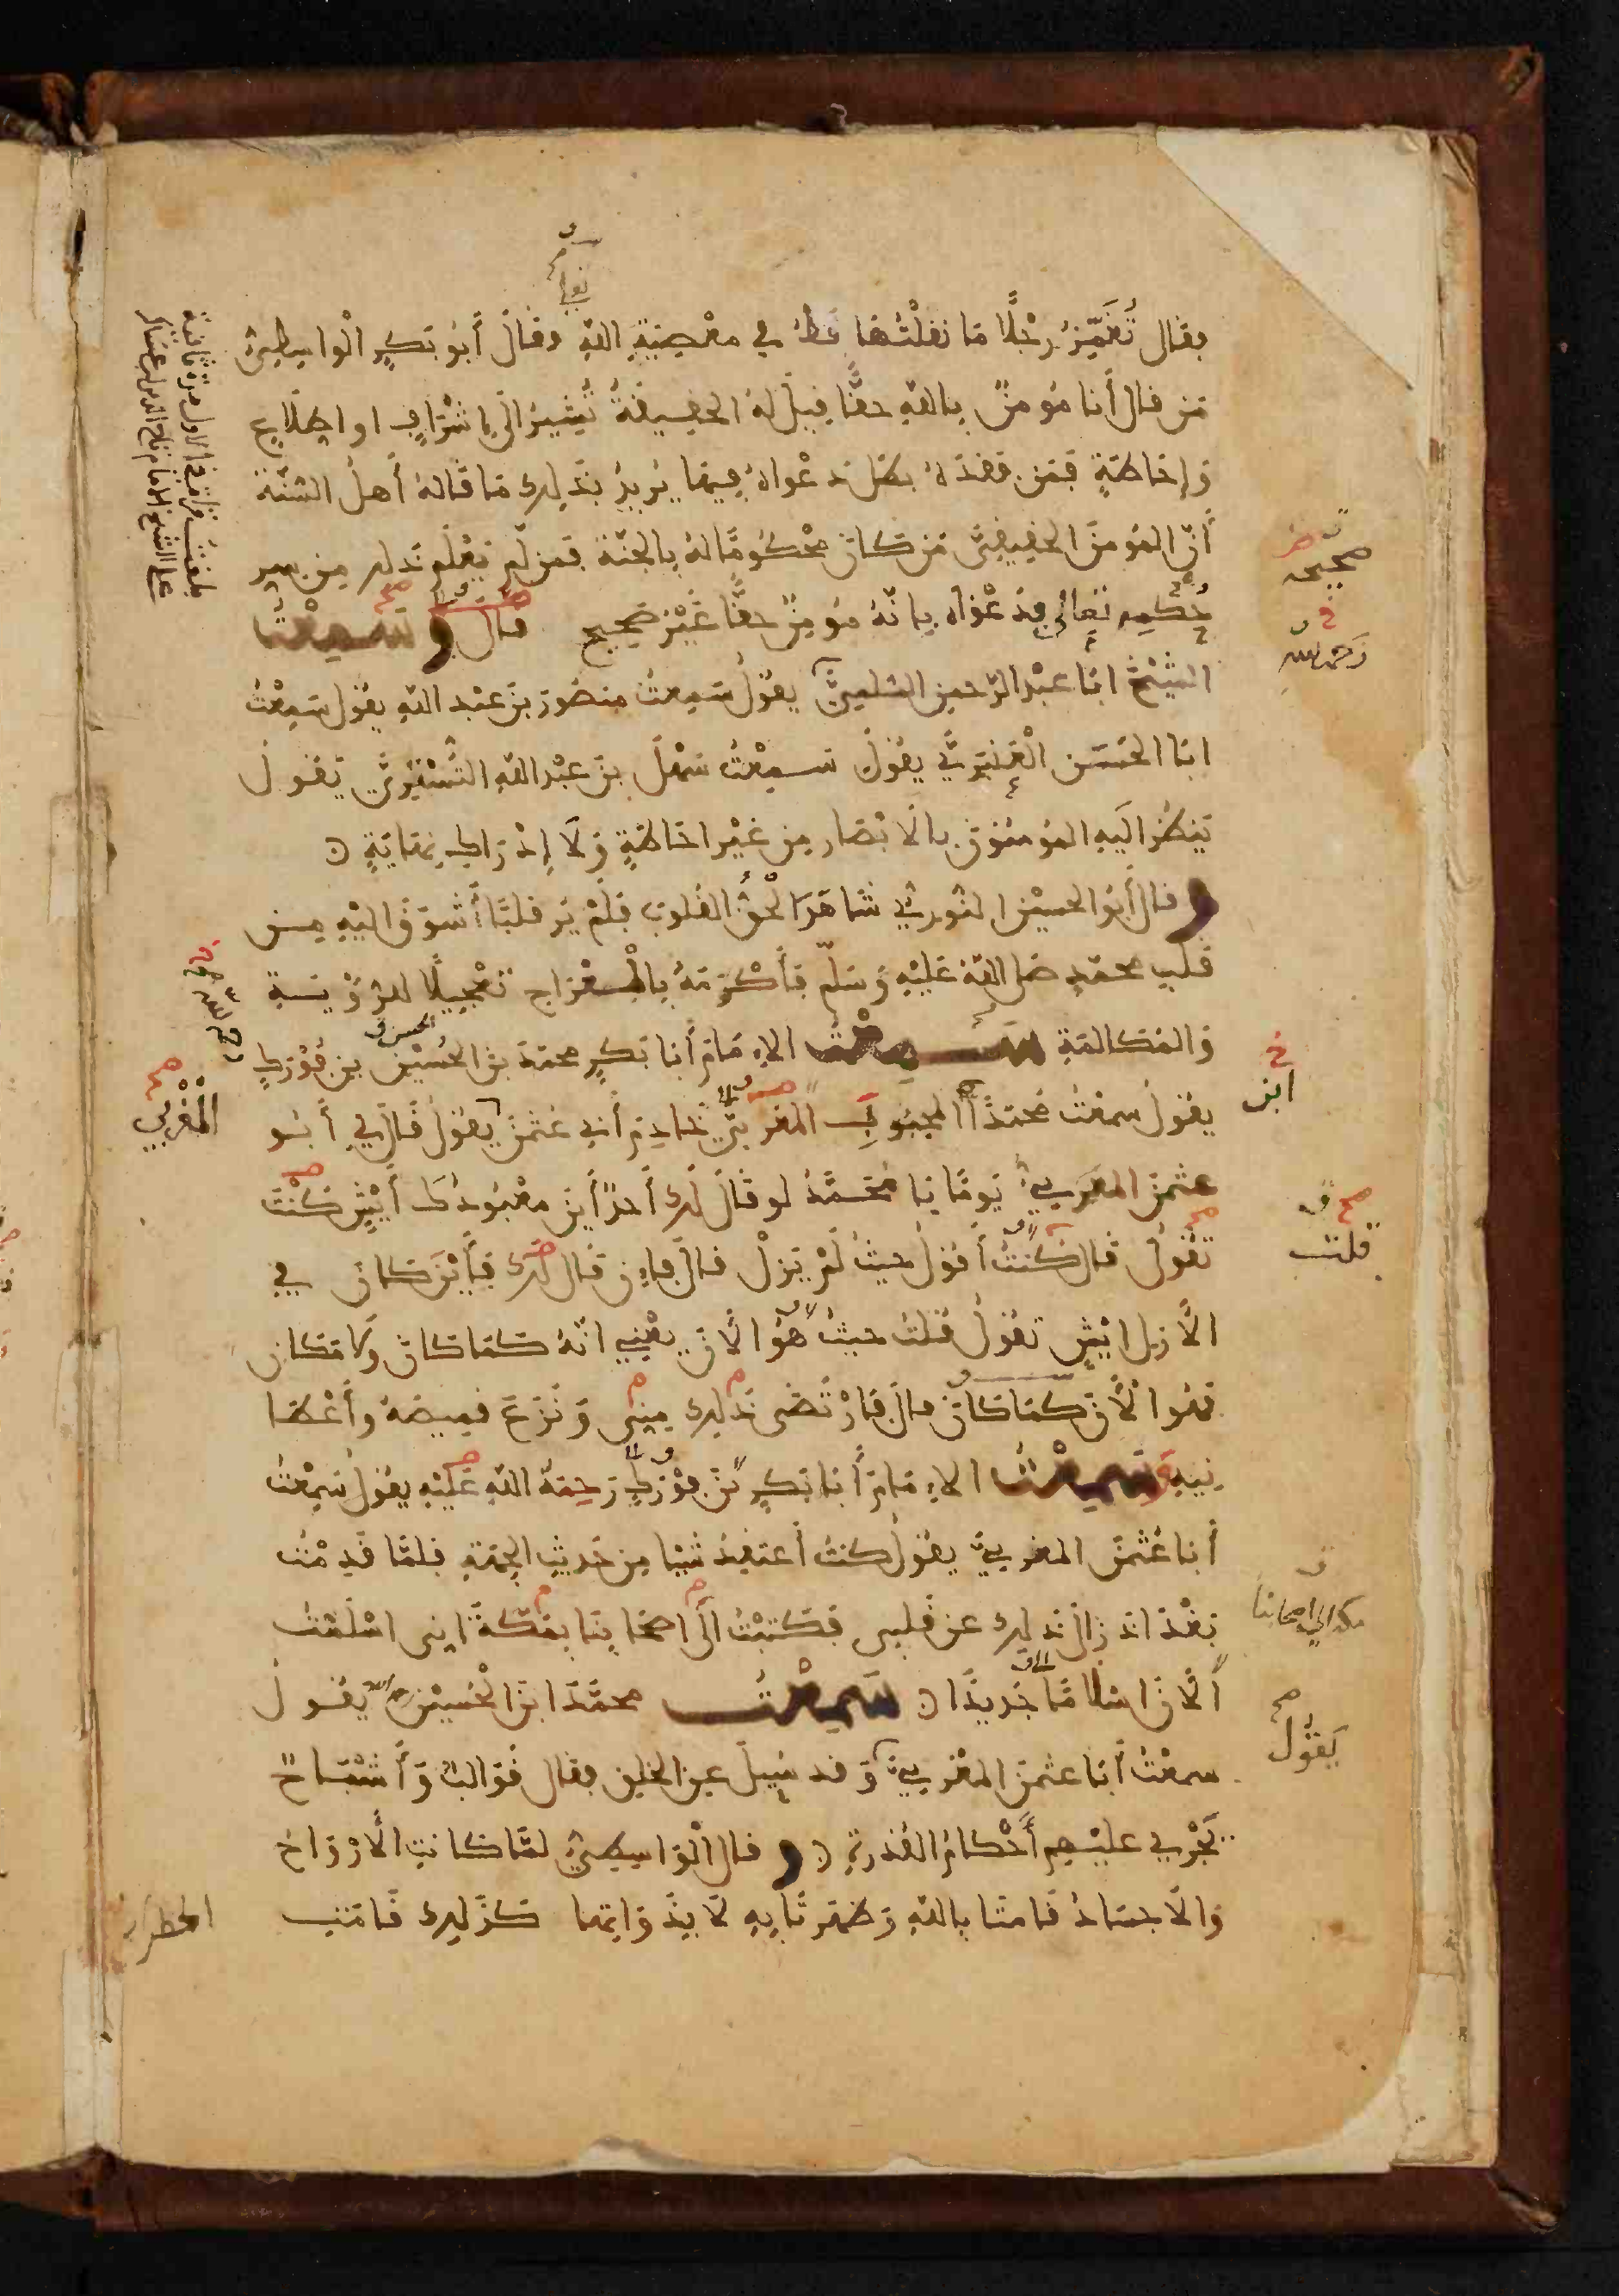 تعالى
فقال تغمز رجلا ما نقلتها قط في معصية الله وقال أبو بكر الواسطي
من قال أنا مؤمن بالله حقا قيل له الحقيقة تشير الى اشراف او اطلاع
وإحاطة فمن فقده بطل دعواه فيها يريد بذلك ما قاله أهل السنة
أن المؤمن الحقيقي من كان محكوما له بالجنة فمن لم يعلم ذلك من سر
حكمه تعالى فدعواه بانه مؤمن حقا غير صحيح قال وسمعت
الشيخ ابا عبد الرحمن السلمي يقول سمعت منصور بن عبد الله يقول سمعت
ابا الحسن العنبري يقول سمعت سهل بن عبد الله التستري يقول
ينظر اليه المؤمنون بالابصار من غير احاطة ولا إدراك نهاية
وقال أبو الحسين النوري شاهد الحق القلوب فلم ير قلبا أشوق اليه من
قلب محمد صلى الله عليه وسلم فأكرمه بالمعراج تعجيلا للرؤية
والمكالمة سمعت الإمام أبا بكر محمد بن الحسين بن فورك
الحسن ق
يقول سمعت محمدا المحبوب المغربي خادم أبي عثمن يقول قال لي أبو
عثمن المغربي يوما يا محمد لو قال لك أحد أين معبودك أيش كنت
تقول قال كنت أقول حيث لم يزل قال فإن قال لك فأين كان في
الأزل ايش تقول قلت حيث هو الأن يعني انه كما كان ولا مكان
فهو الأن كما كان قال فارتضى ذلك مني ونزع قميصه وأعطا
نيه وسمعت الإمام أبا بكر بن فورك رحمة الله عليه يقول سمعت
أبا عثمن المغربي يقول كنت أعتقد شيا من حديث الجهة فلما قدمت
بغداد زال ذلك عن قلبي فكتبت الى اصحابنا بمكة اني اسلمت
الأن اسلاما جديدا سمعت محمد ابن الحسين يقول
سمعت أبا عثمن المغربي وقد سيل عن الخلق فقال قوالب وأشباح
تجري عليهم أحكام القدرة وقال الواسطي لما كانت الأرواح
والأجساد قامتا بالله وظهرتا به لا بذواتها كذلك قامت
الخطرات
صحيح
رحمه الله
ابن
المغربي
قلت
مكة الى اصحابنا
يقول
بلغت قراءة في الاول مرة ثانية
على الشيخ الامام تاج الدين بن عساكر